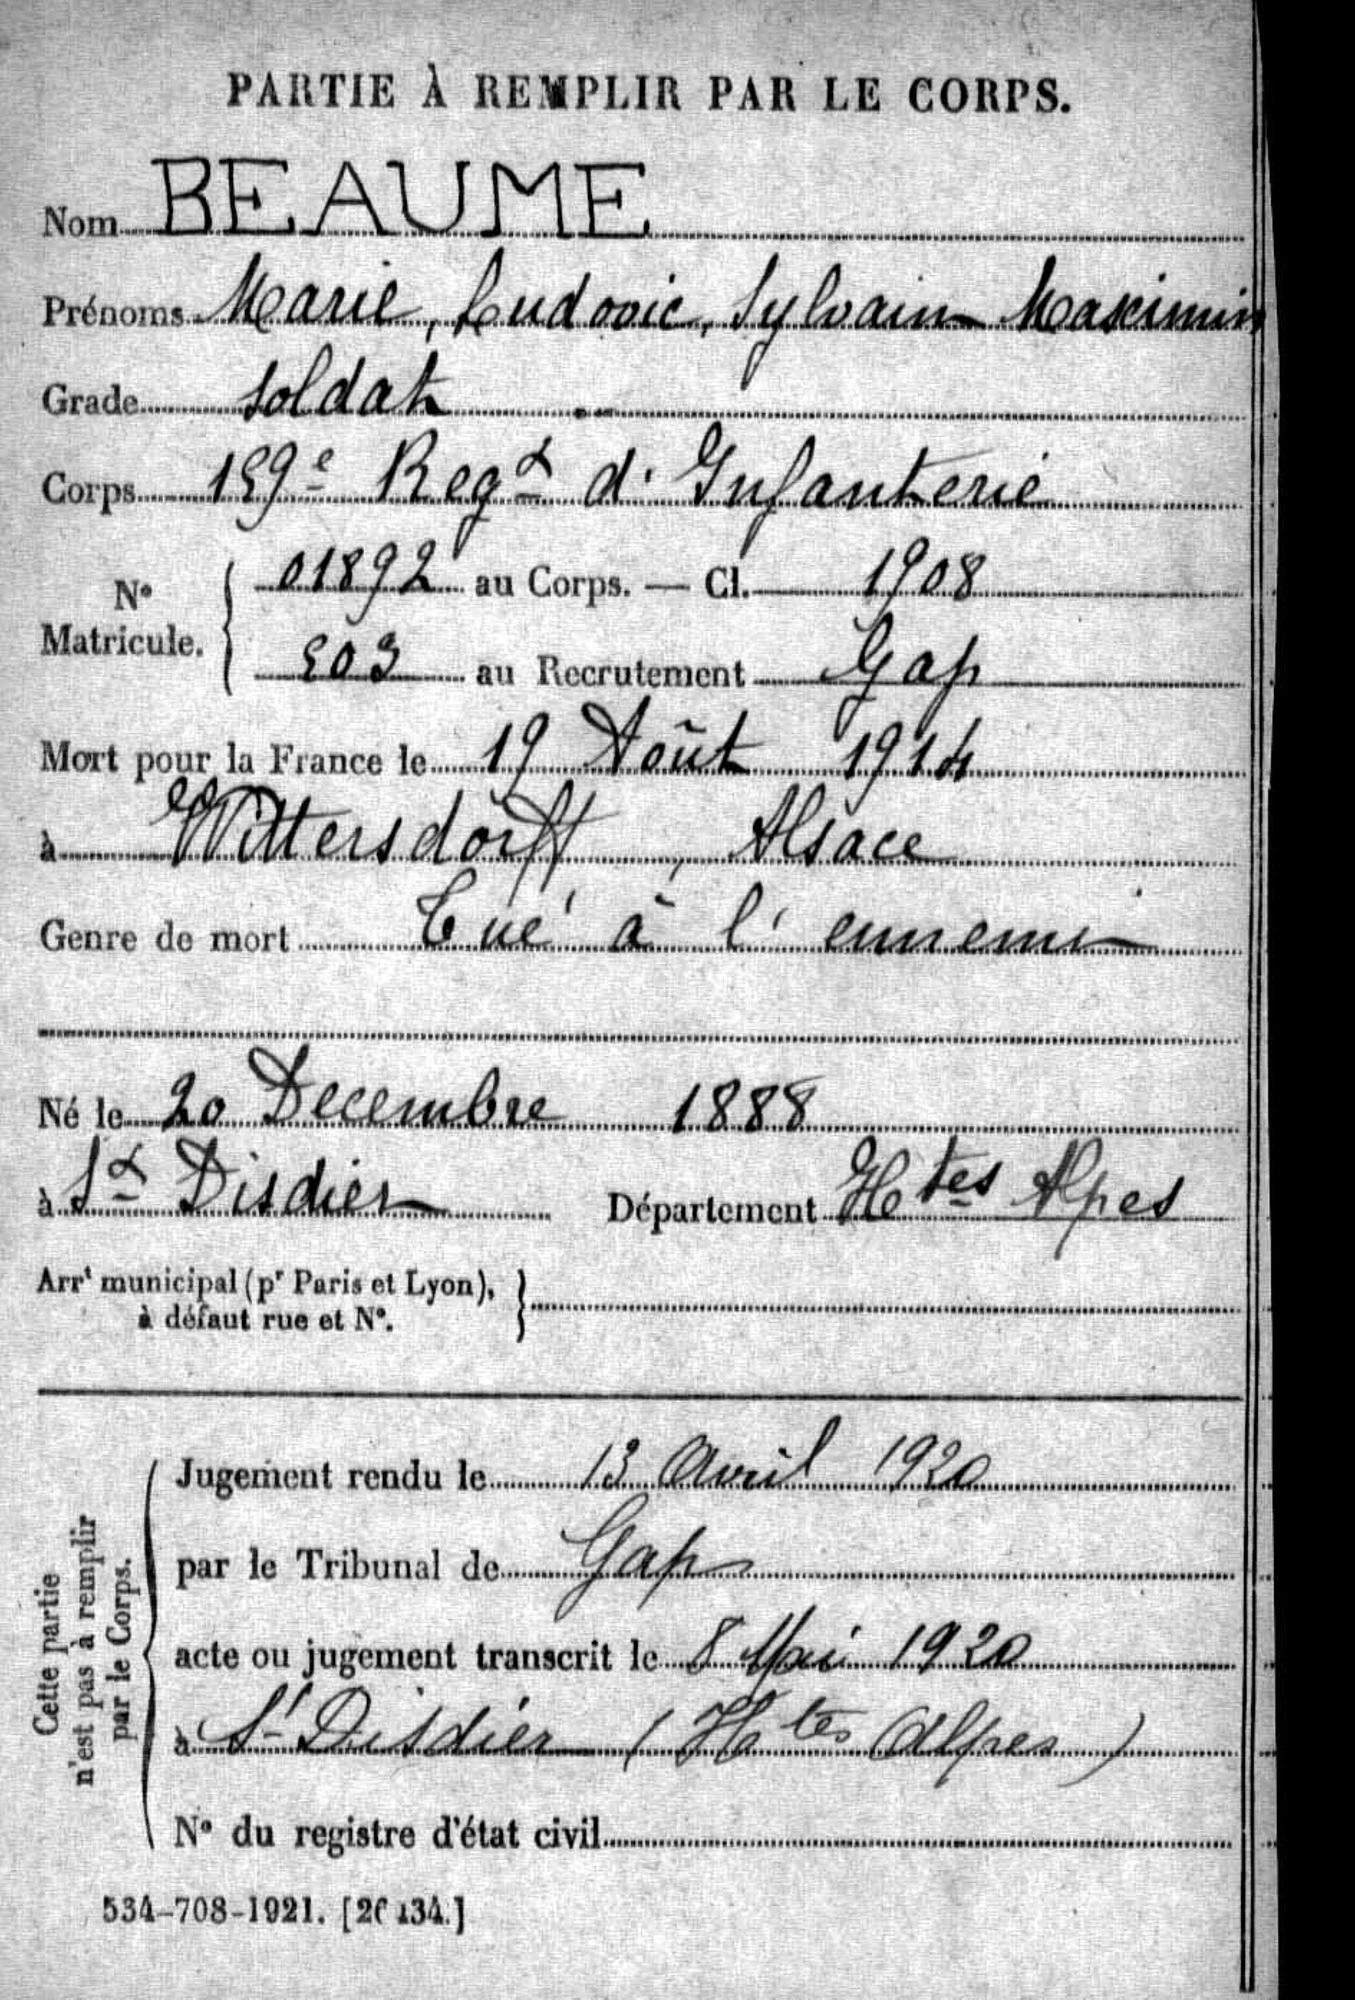 PARTIE À REMPLIR PAR LE CORPS.
Nom BEAUME
Prénoms Marie, Ludovic, Sylvain Maximin
Grade Soldat
Corps 159e Regt d'Infanterie
No Matricule. 01892 au Corps. — Cl. 1908
503 au Recrutement Gap
Mort pour la France le 19 Août 1914
à Wittersdorff, Alsace
Genre de mort Tué à l'ennemi
Né le 20 Decembre 1888
à St Disdier Département Htes Alpes
Arrt municipal (pr Paris et Lyon),
à défaut rue et No.
Cette partie
n'est pas à remplir
par le Corps.
Jugement rendu le 13 Avril 1920
par le Tribunal de Gap
acte ou jugement transcrit le 8 Mai 1920
à St Disdier (Htes Alpes)
No du registre d'état civil
534-708-1921. [26134.]